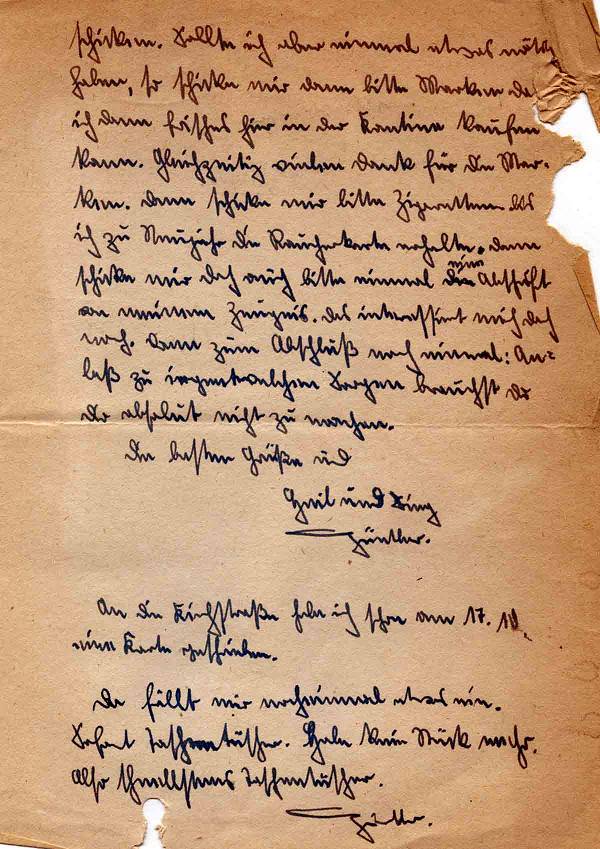 schicken. Sollte ich aber einmal etwas nötig
haben, so schicke mir dann bitte Marken da
ich dann frisches hier in der Kantine kaufen
kann. Gleichzeitig vielen Dank für die Mar-
ken. Dann schicke mir bitte Zigaretten bis
ich zu Neujahr die Raucherkarte erhalte. Dann
schicke mir doch auch bitte einmal eine Abschrift
von meinem Zeugnis. Das interessiert mich doch
noch. Dann zum Abschluß noch einmal: An-
laß zu irgentwelchen Sorgen brauchst du
dir absolut nicht zu machen.
Die besten Grüße und
Heil und Sieg
Günther.
An die Kirchstraße habe ich schon am 17. 10.
eine Karte geschrieben.
Da fällt mir nocheinmal etwas ein.
Sofort Taschentücher. Habe kein Stück mehr.
Also schnellstens Taschentücher.
Günther.